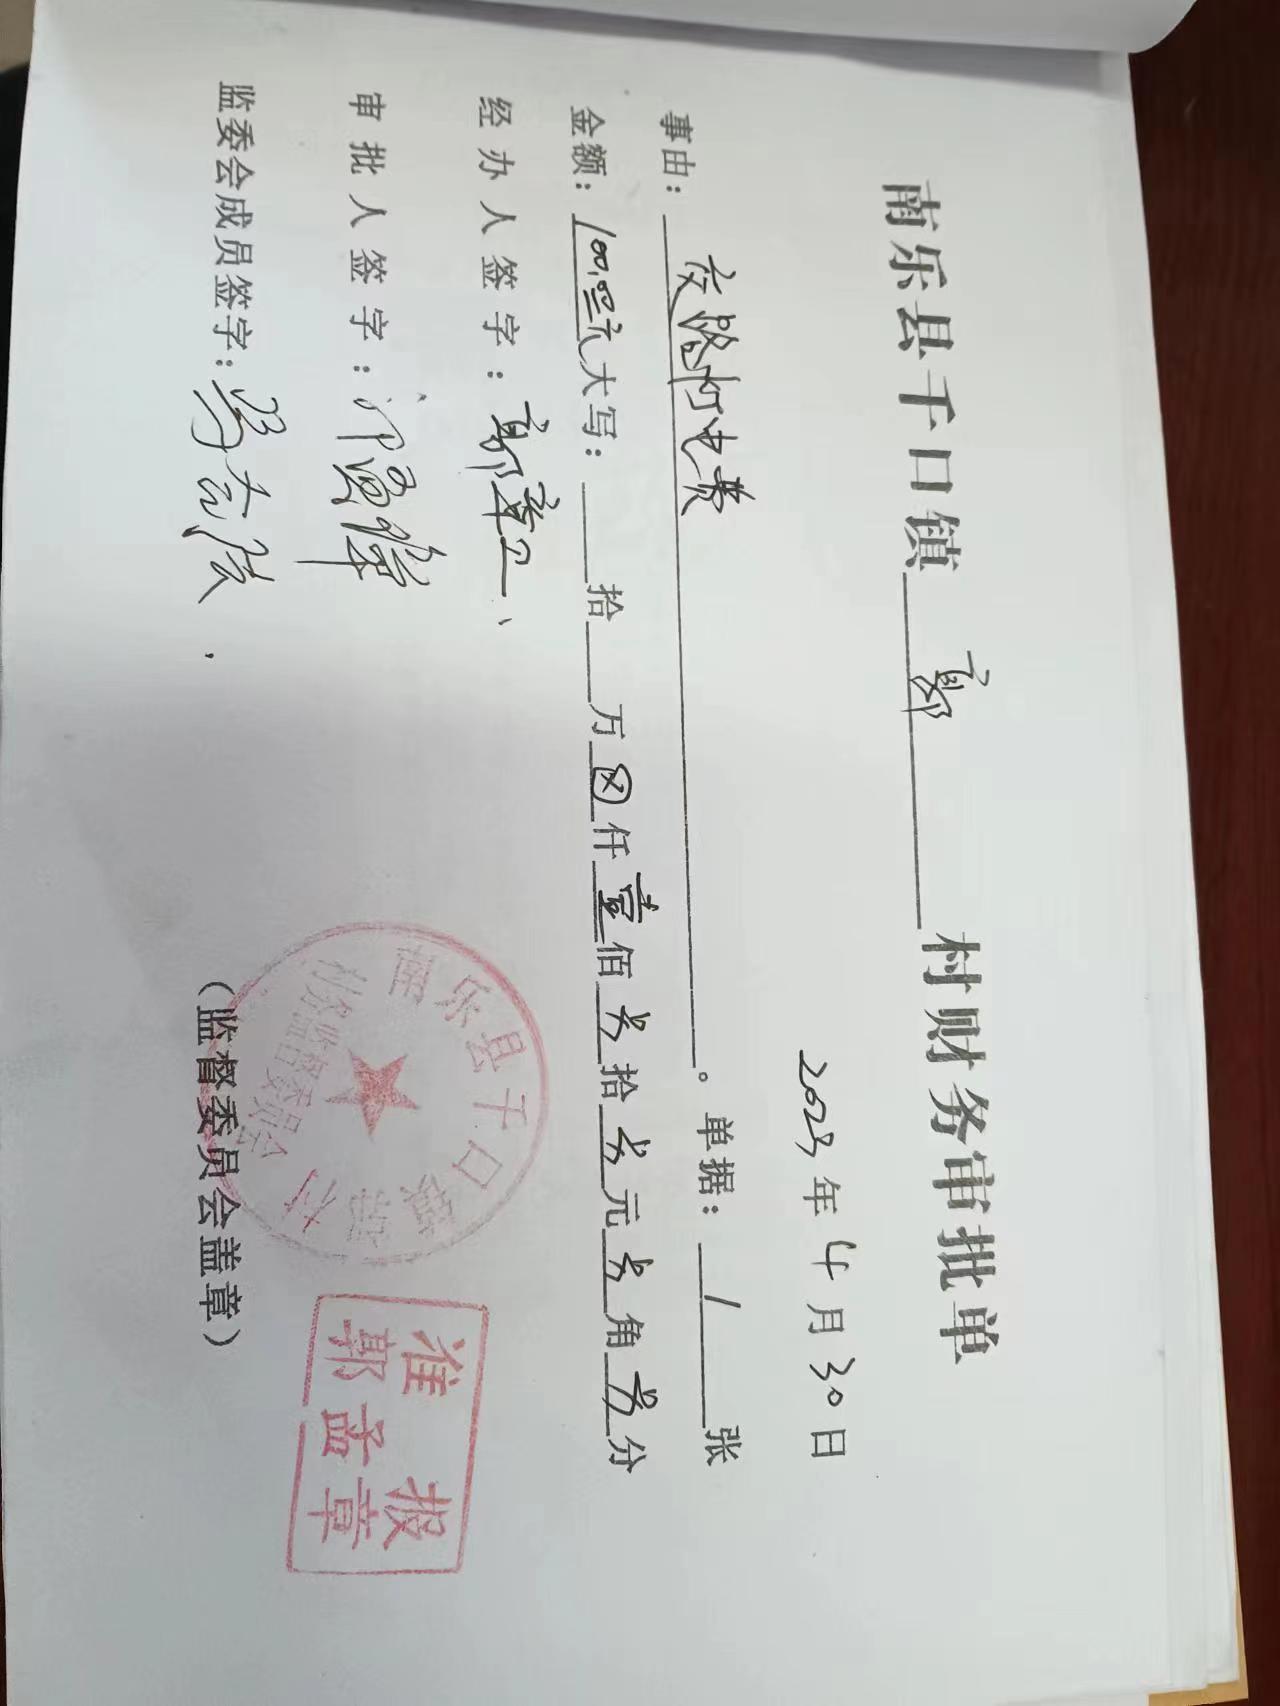 南乐县千口镇 郭 村财务审批单
2023年4月30日
事由：交路灯电费。单据：1张
金额：100.00元大写：拾万⊗仟壹佰零拾零元零角零分
经办人签字：郭章卫
审批人签字：
监委会成员签字：
(监督委员会盖章)
南乐县千口镇郭村
村务监督委员会
准报
郭孟章